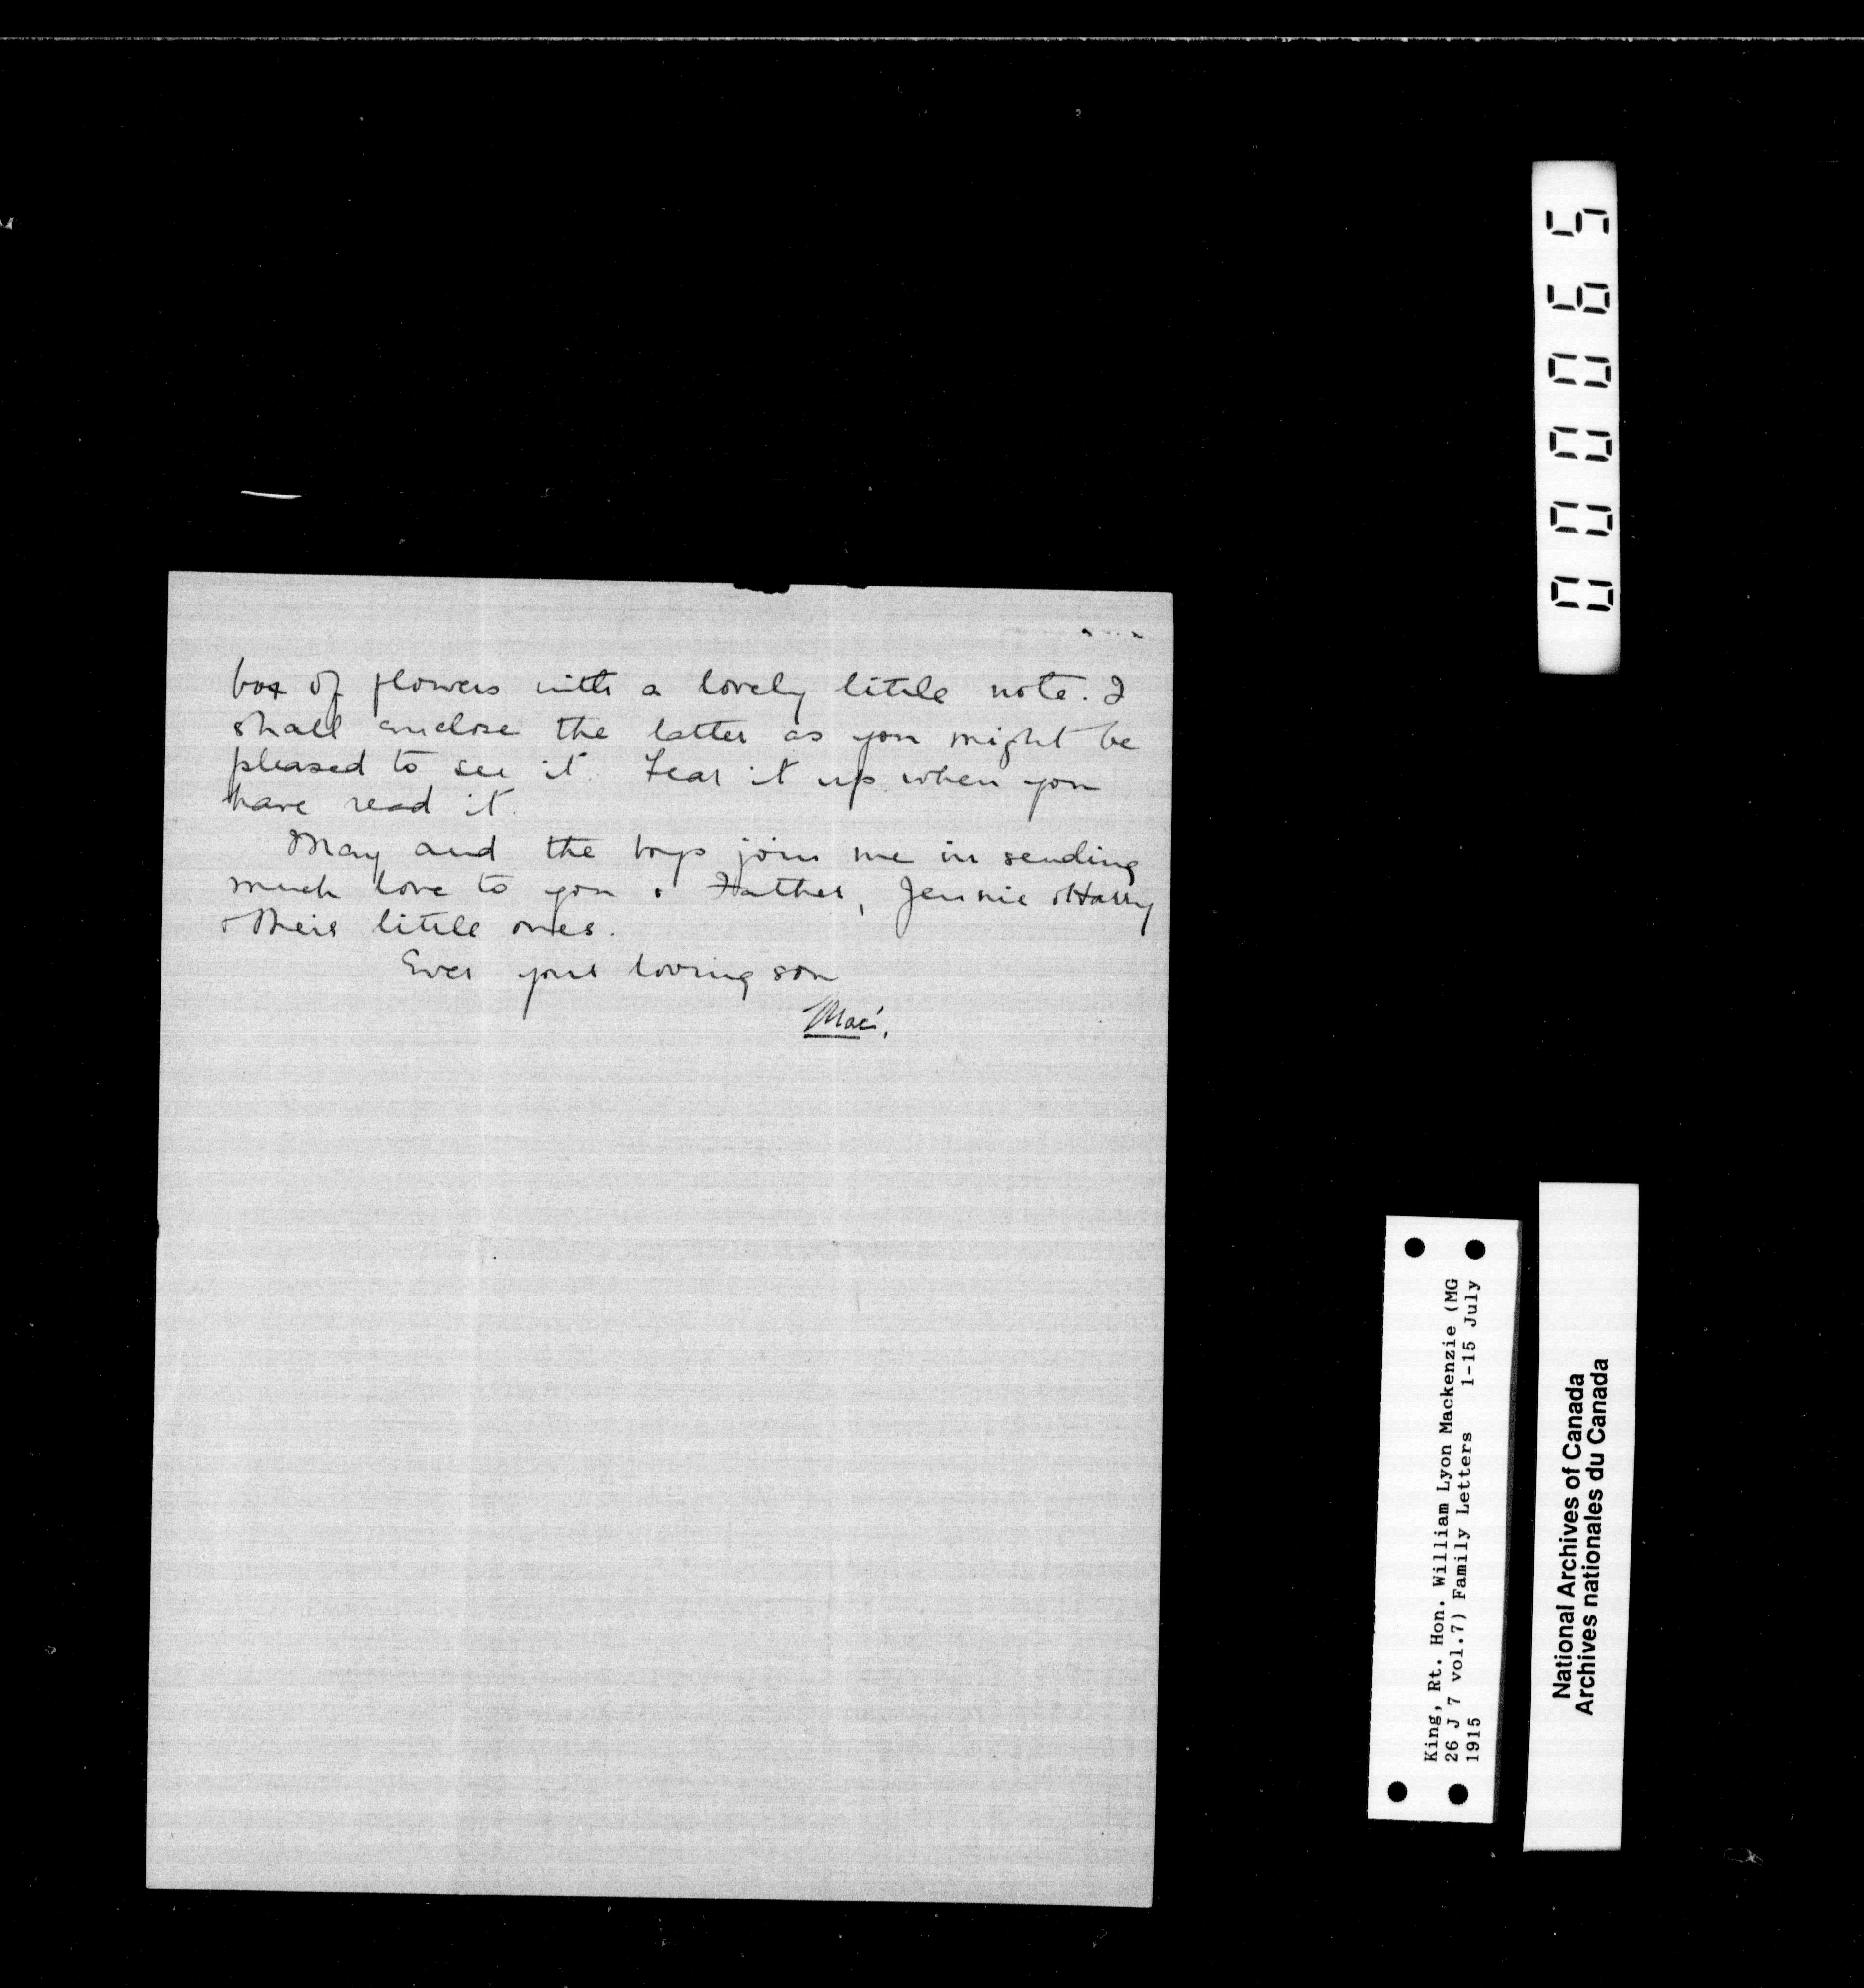 box of flowers with a lovely little note. I
shall enclose the latter as you might be
pleased to see it. Tear it up when you
have read it.
May and the boys join me in sending
much love to you & Father, Jennie & Harry
& their little ones.
Ever your loving son
Mac.
000065
King, Rt. Hon. William Lyon Mackenzie (MG
26 J 7 vol.7) Family Letters 1-15 July
1915
National Archives of Canada
Archives nationales du Canada